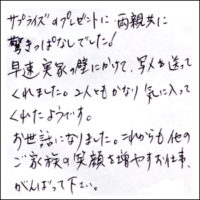 サプライズのプレゼントに両親共に
驚きっぱなしでした!
早速実家の壁にかけて、写真を送って
くれました。2人ともかなり気に入って
くれたようです。
お世話になりました。これからも他の
ご家族の笑顔を増やすお仕事、
がんばって下さい。